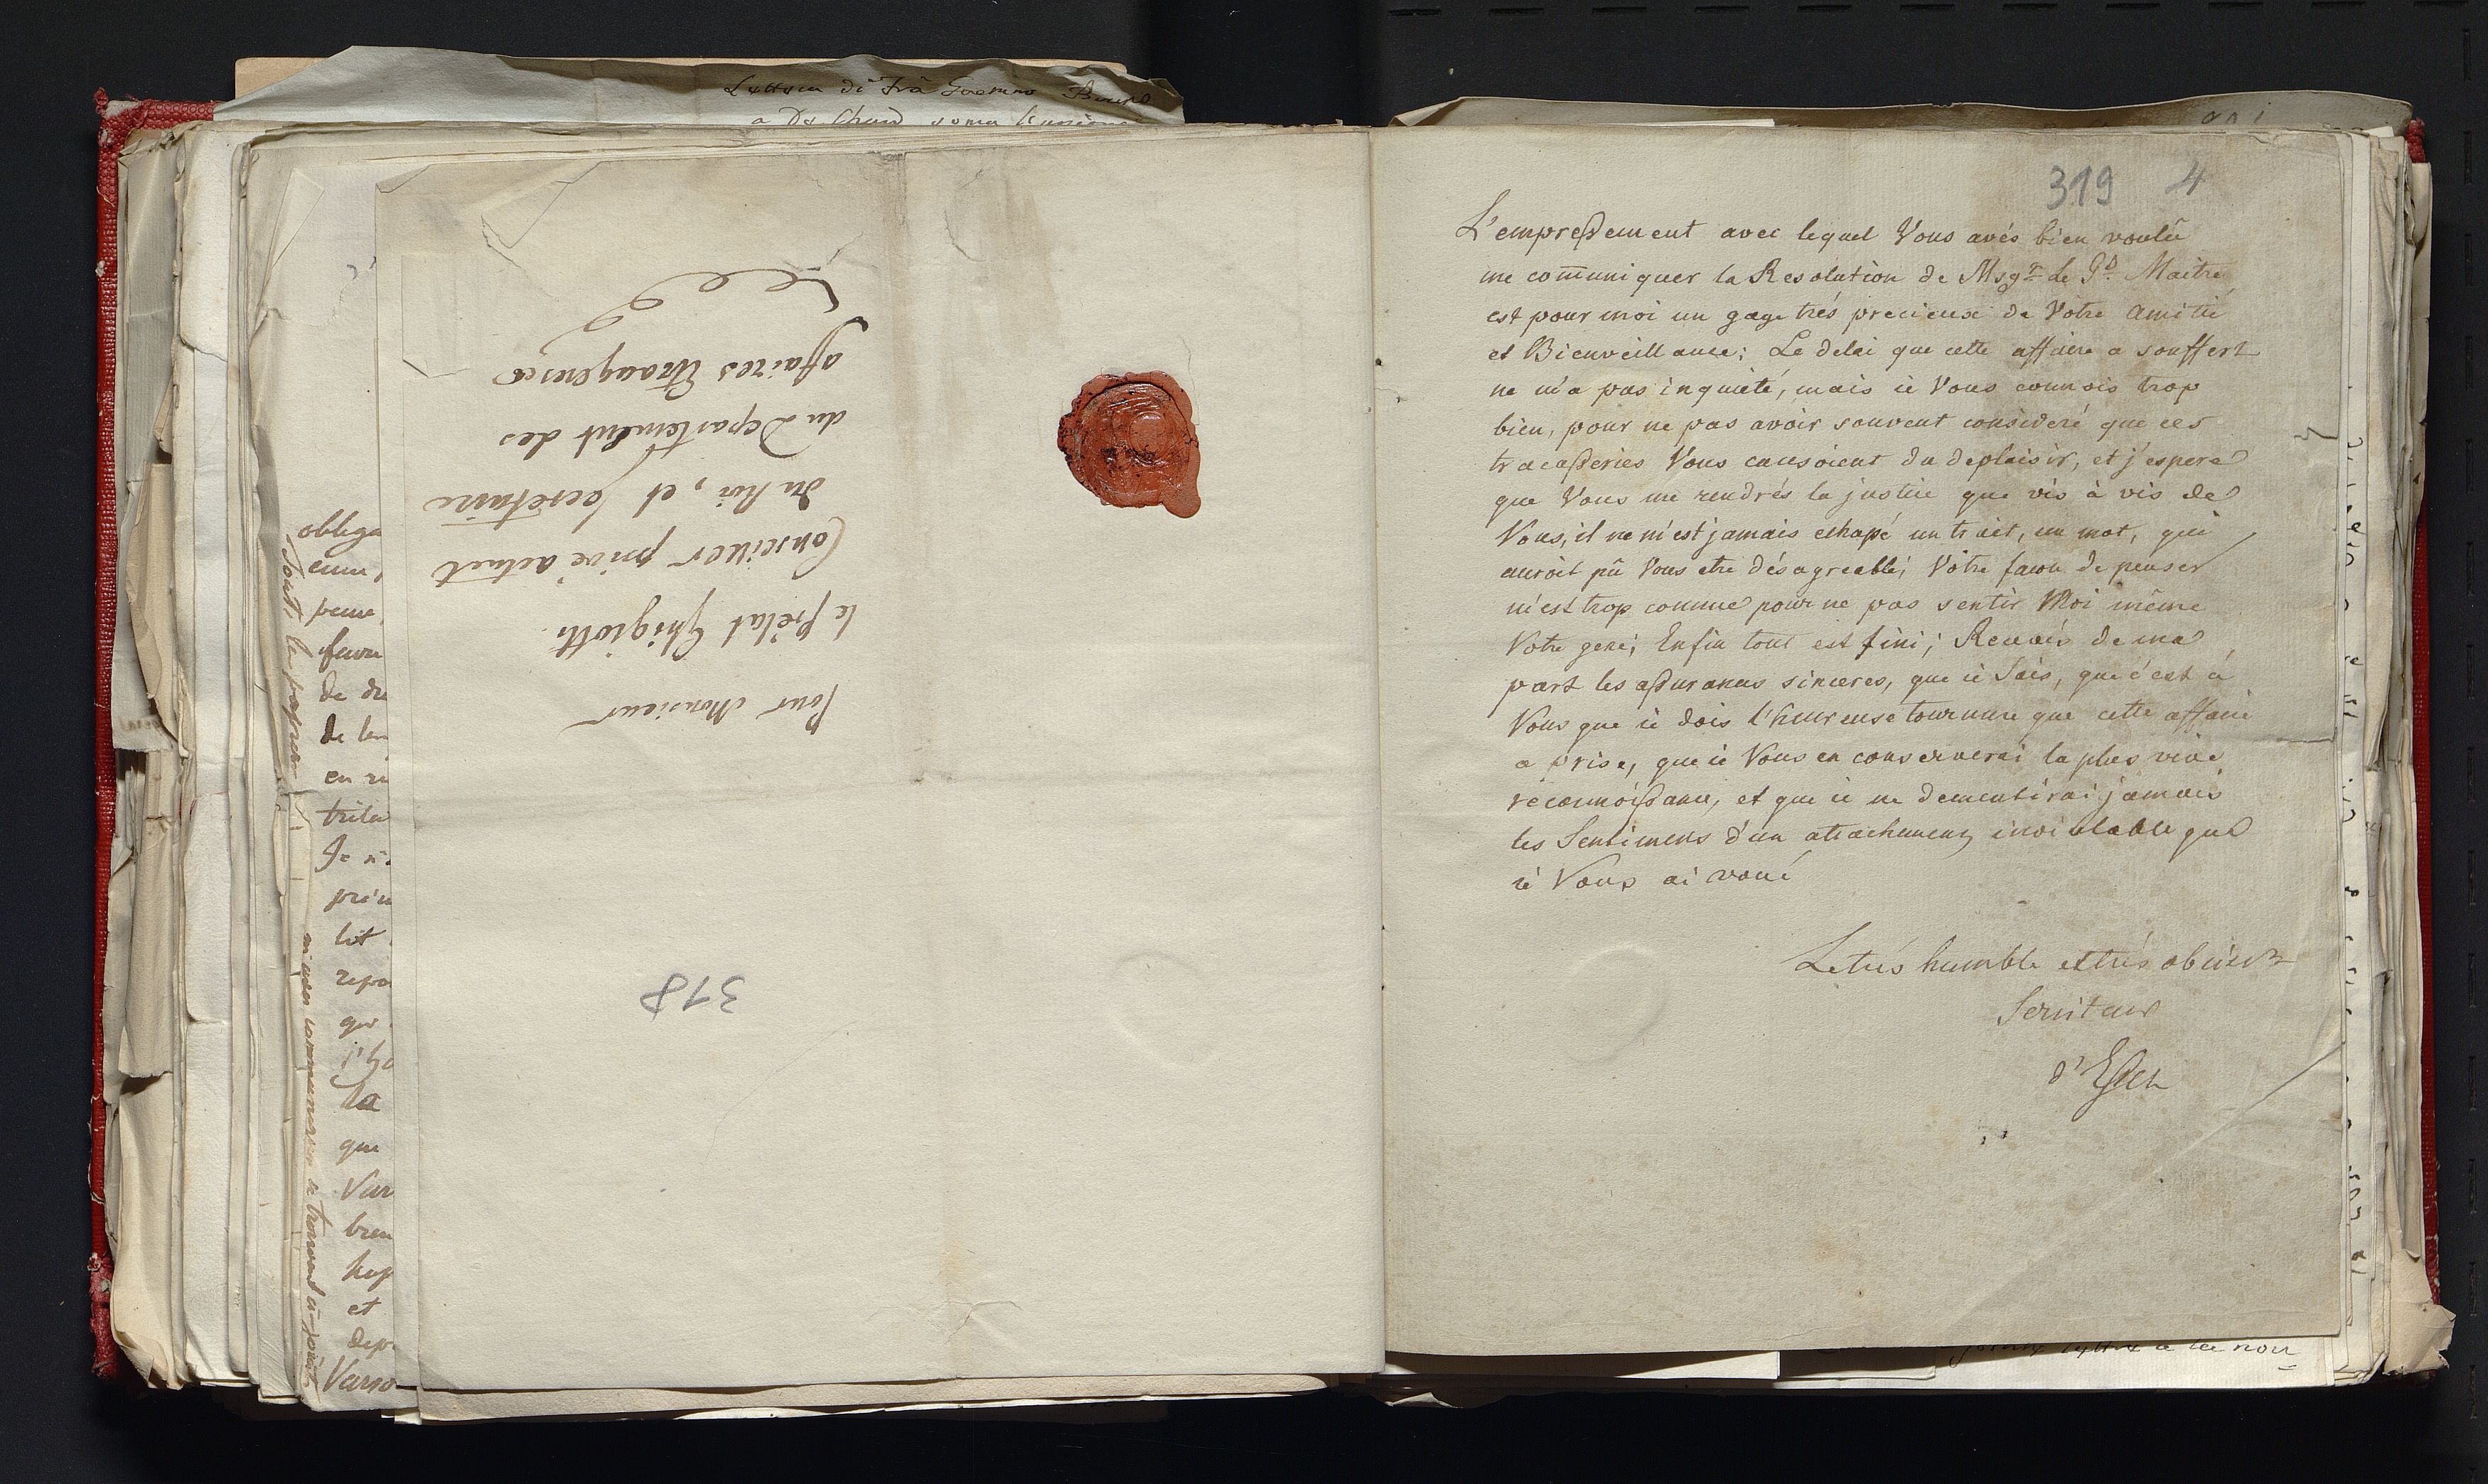 Lettera di Frà
a De
Pour Monsieur
le Prélat Ghigiotti
Conseiller privé actuel
du Roi, et Secretaire
du Departement des
affaires Etrangeres
318
obliga
peine
de
de
en
Je
lui
que
la
que
Var
bien
et
dep
Varso
319 4
L'empreſsement avec lequel Vous avés bien voulû
me com̄uniquer la Resolution de Msgr. le Gd. Maitre
est pour moi un gage trés precieux de Votre amitié
et Bienveillance; Le delai que cette affaire a souffert
ne m'a pas inquieté, mais ie Vous connois trop
bien, pour ne pas avoir souvent consideré que ces
tracaſseries Vous causoient du deplaisir, et j'espere
que Vous me rendrés la justice que vis à vis de
Vous, il ne m'est jamais echapé un trait, un mot, qui
auroit pû Vous etre désagreable; Votre facon de penser
m'est trop connue pour ne pas sentir Moi même
Votre gene; Enfin tout est fini; Recevés de ma
part les aſsurances sinceres, que ie Sais, que c'est à
Vous que ie dois l'heureuse tournure que cette affaire
a prise, que ie Vous en conserverai la plus vive
reconnoiſsance, et que ie ne dementirai jamais
les Sentimens d'un attachement inviolable que
ie Vous ai voué
Le trés humble et trés obeisst
Serviteur
lettre a la